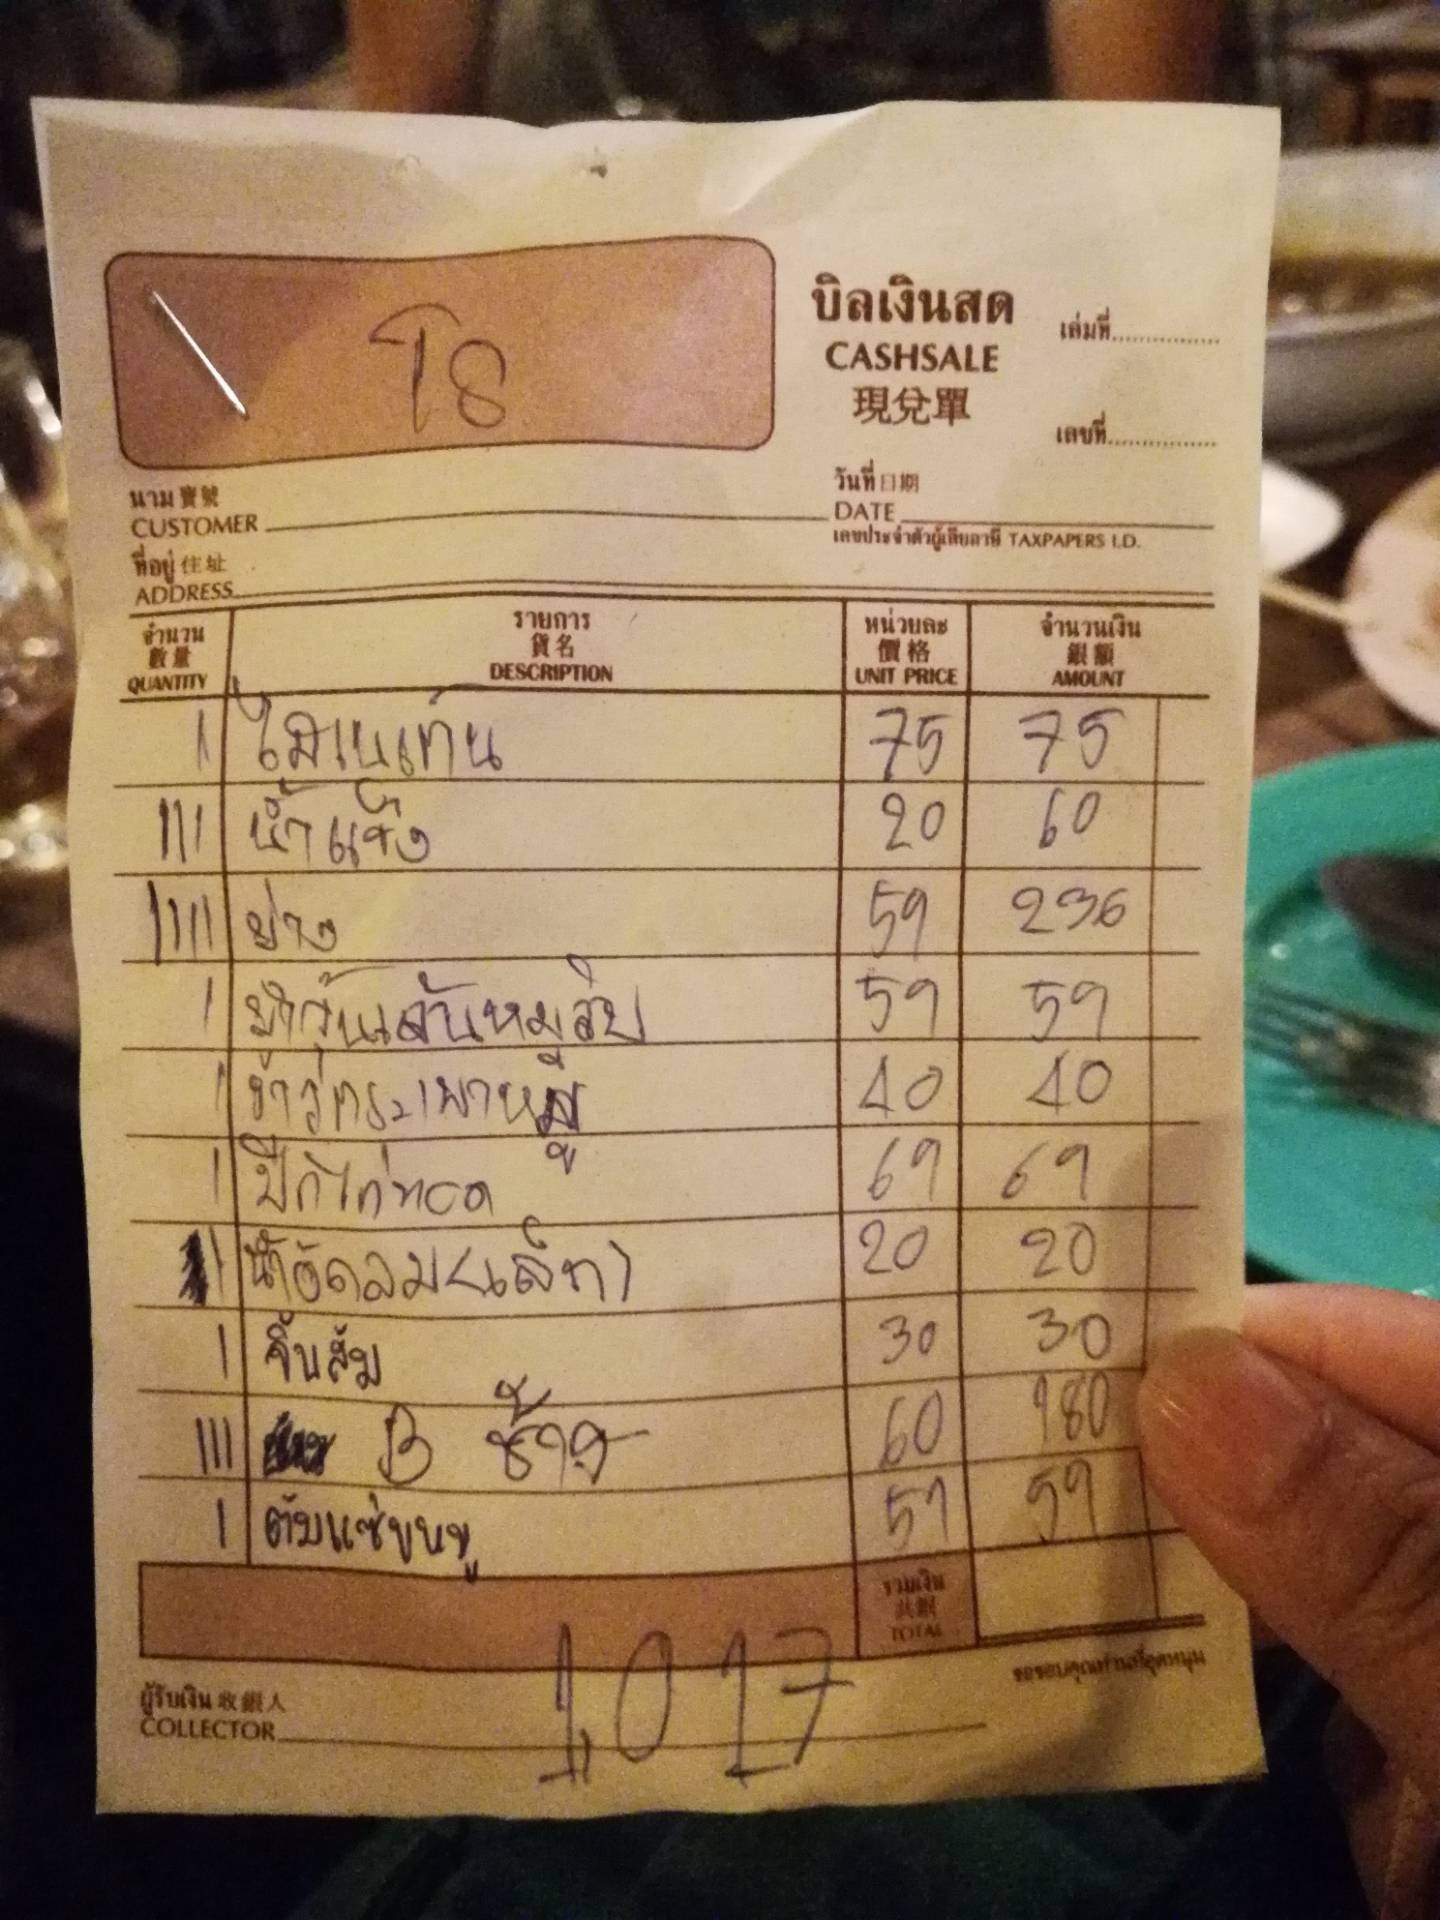 T8
บิลเงินสด
CASHSALE
現兌單
เล่มที่
เลขที่
นาม 寶號
CUSTOMER
วันที่ 日期
DATE
เลขประจำตัวผู้เสียภาษี TAXPAPERS I.D.
ที่อยู่ 住址
ADDRESS
จำนวน 數量 QUANTITY
รายการ 貨名 DESCRIPTION
หน่วยละ 價格 UNIT PRICE
จำนวนเงิน 銀額 AMOUNT
I 75 75
III น้ำแข็ง 20 60
IIII ย่าง 59 236
I ยำวุ้นเส้นหมูสับ 59 59
I ข้าวกระเพาหมู 40 40
I ปีกไก่ทอด 69 69
I น้ำอัดลม(เล็ก) 20 20
I จิ้นส้ม 30 30
III B ช้าง 60 180
I ต้มแซ่บหมู 59 59
รวมเงิน
TOTAL
1,017
ขอขอบคุณท่านที่อุดหนุน
ผู้รับเงิน 收銀人
COLLECTOR